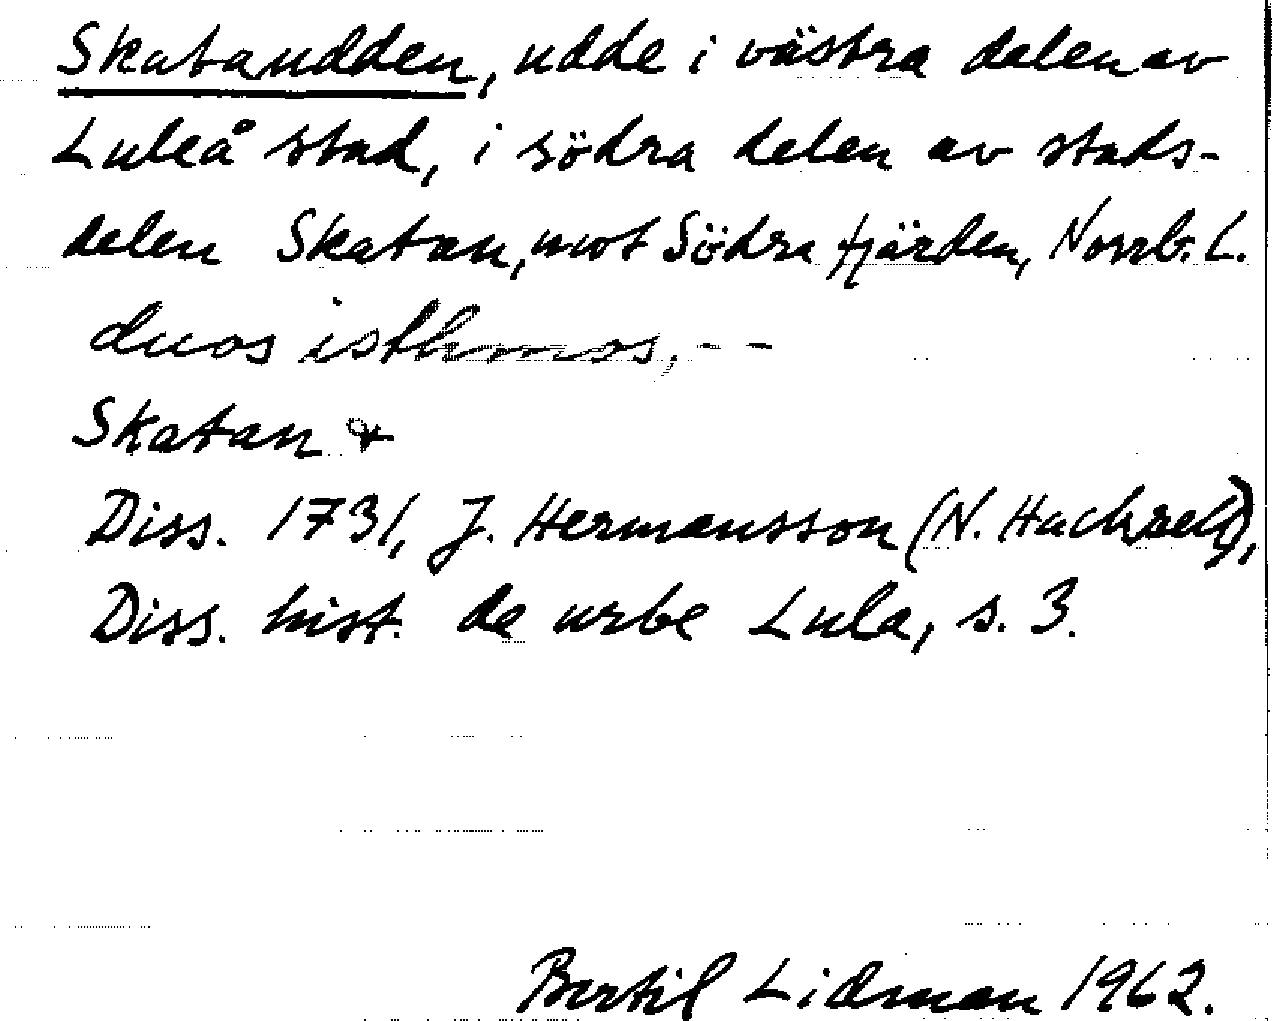 Skatanudden, udde i västra delen av
Luleå stad, i södra delen av stads-
delen Skatan, mot Södra fjärden, Norrb. L.
duos isthmos, - -
Skatan &
Diss. 1731, J. Hermansson (N. Hackzell),
Diss. hist. de urbe Lula, s. 3.
Bertil Lidman 1962.